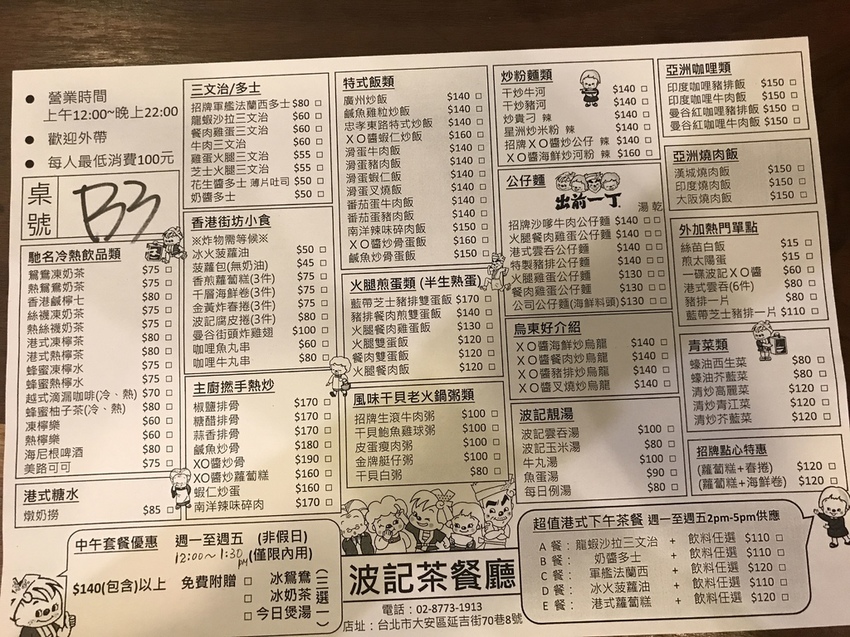 ● 營業時間
上午12:00~晚上22:00
● 歡迎外帶
● 每人最低消費100元
桌號
B3
馳名冷熱飲品類
鴛鴦凍奶茶 $75 □
熱鴛鴦奶茶 $75 □
香港鹹檸七 $80 □
絲襪凍奶茶 $75 □
熱絲襪奶茶 $75 □
港式凍檸茶 $80 □
港式熱檸茶 $80 □
蜂蜜凍檸水 $80 □
蜂蜜熱檸水 $75 □
越式滴漏咖啡(冷、熱) $70 □
蜂蜜柚子茶(冷、熱) $80 □
凍檸樂 $60 □
熱檸樂 $60 □
海尼根啤酒 $80 □
美路可可 $75 □
港式糖水
燉奶撈 $85 □
三文治/多士
招牌軍艦法蘭西多士 $80 □
龍蝦沙拉三文治 $60 □
餐肉雞蛋三文治 $60 □
牛肉三文治 $60 □
雞蛋火腿三文治 $55 □
芝士火腿三文治 $55 □
花生醬多士 薄片吐司 $50 □
奶醬多士 $50 □
香港街坊小食
※炸物需等候※
冰火菠蘿油 $50 □
菠蘿包(無奶油) $45 □
香煎蘿蔔糕(3件) $75 □
千層海鮮卷(3件) $75 □
金黃炸春捲(3件) $75 □
波記腐皮捲(3件) $80 □
曼谷街頭炸雞翅 $100 □
咖哩魚丸串 $60 □
咖哩牛丸串 $80 □
主廚撚手熱炒
椒鹽排骨 $170 □
糖醋排骨 $170 □
蒜香排骨 $170 □
鹹魚炒骨 $180 □
XO醬炒骨 $190 □
XO醬炒蘿蔔糕 $160 □
蝦仁炒蛋 $160 □
南洋辣味碎肉 $170 □
特式飯類
廣州炒飯 $140 □
鹹魚雞粒炒飯 $140 □
忠孝東路特式炒飯 $140 □
XO醬蝦仁炒飯 $160 □
滑蛋牛肉飯 $140 □
滑蛋豬肉飯 $140 □
滑蛋蝦仁飯 $150 □
滑蛋叉燒飯 $140 □
番茄蛋牛肉飯 $140 □
番茄蛋豬肉飯 $140 □
南洋辣味碎肉飯 $150 □
XO醬炒骨蛋飯 $160 □
鹹魚炒骨蛋飯 $150 □
火腿煎蛋類 (半生熟蛋)
藍帶芝士豬排雙蛋飯 $170 □
豬排餐肉煎雙蛋飯 $140 □
火腿餐肉雞蛋飯 $130 □
火腿雙蛋飯 $120 □
餐肉雙蛋飯 $120 □
火腿餐肉飯 $120 □
風味干貝老火鍋粥類
招牌生滾牛肉粥 $100 □
干貝鮑魚雞球粥 $100 □
皮蛋瘦肉粥 $100 □
金牌艇仔粥 $100 □
干貝白粥 $80 □
炒粉麵類
干炒牛河 $140 □
干炒豬河 $140 □
炒貴刁 辣 $140 □
星洲炒米粉 辣 $140 □
招牌XO醬炒公仔 辣 $140 □
XO醬海鮮炒河粉 辣 $160 □
公仔麵
出前一丁
湯 乾
招牌沙嗲牛肉公仔麵 $140 □ □
火腿餐肉雞蛋公仔麵 $140 □ □
港式雲吞公仔麵 $140 □ □
特製豬排公仔麵 $140 □ □
火腿雞蛋公仔麵 $130 □ □
餐肉雞蛋公仔麵 $130 □ □
公司公仔麵(海鮮料頭) $130 □ □
烏東好介紹
XO醬海鮮炒烏龍 $140 □
XO醬餐肉炒烏龍 $140 □
XO醬豬排炒烏龍 $140 □
XO醬叉燒炒烏龍 $140 □
波記靚湯
波記雲吞湯 $100 □
波記玉米湯 $80 □
牛丸湯 $100 □
魚蛋湯 $90 □
每日例湯 $80 □
亞洲咖哩類
印度咖哩豬排飯 $150 □
印度咖哩牛肉飯 $150 □
曼谷紅咖哩豬排飯 $150 □
曼谷紅咖哩牛肉飯 $150 □
亞洲燒肉飯
漢城燒肉飯 $150 □
印度燒肉飯 $150 □
大阪燒肉飯 $150 □
外加熱門單點
絲苗白飯 $15 □
煎太陽蛋 $15 □
一碟波記XO醬 $60 □
港式雲吞(6件) $80 □
豬排一片 $80 □
藍帶芝士豬排一片 $110 □
青菜類
蠔油西生菜 $80 □
蠔油芥藍菜 $80 □
清炒高麗菜 $120 □
清炒青江菜 $120 □
清炒芥藍菜 $120 □
招牌點心特惠
(蘿蔔糕+春捲) $120 □
(蘿蔔糕+海鮮卷) $120 □
中午套餐優惠 週一至週五 (非假日)
12:00~1:30pm (僅限內用)
$140(包含)以上 免費附贈 □ 冰鴛鴦
□ 冰奶茶
□ 今日煲湯
(三選一)
波記茶餐廳
電話:02-8773-1913
店址:台北市大安區延吉街70巷8號
超值港式下午茶餐 週一至週五2pm-5pm供應
A餐: 龍蝦沙拉三文治 + 飲料任選 $110 □
B餐: 奶醬多士 + 飲料任選 $110 □
C餐: 軍艦法蘭西 + 飲料任選 $120 □
D餐: 冰火菠蘿油 + 飲料任選 $110 □
E餐: 港式蘿蔔糕 + 飲料任選 $120 □